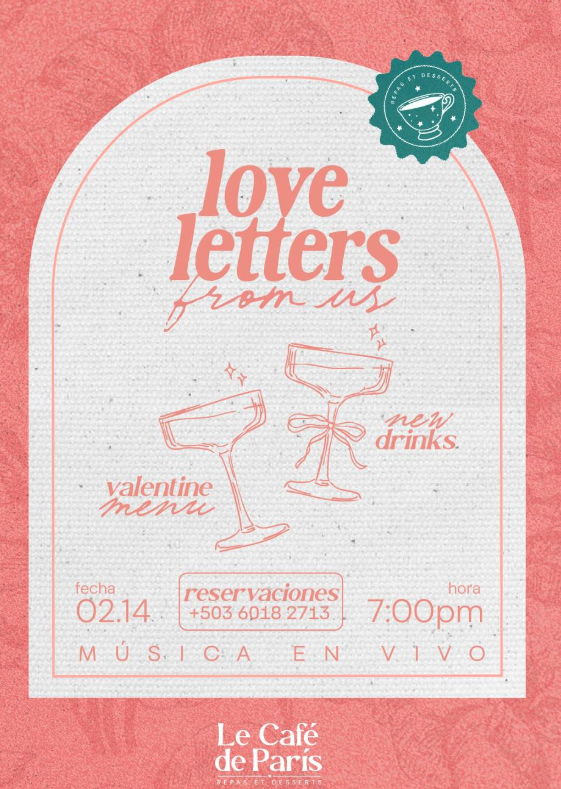 REPAS ET DESSERTS
love
letters
from us
new
drinks.
valentine
menu
fecha
02.14
reservaciones
+503 6018 2713
hora
7:00pm
MÚSICA EN VIVO
Le Café
de París
REPAS ET DESSERTS